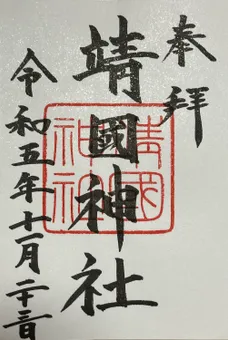 奉拝
靖國神社
令和五年十一月二十三日
靖國
神社